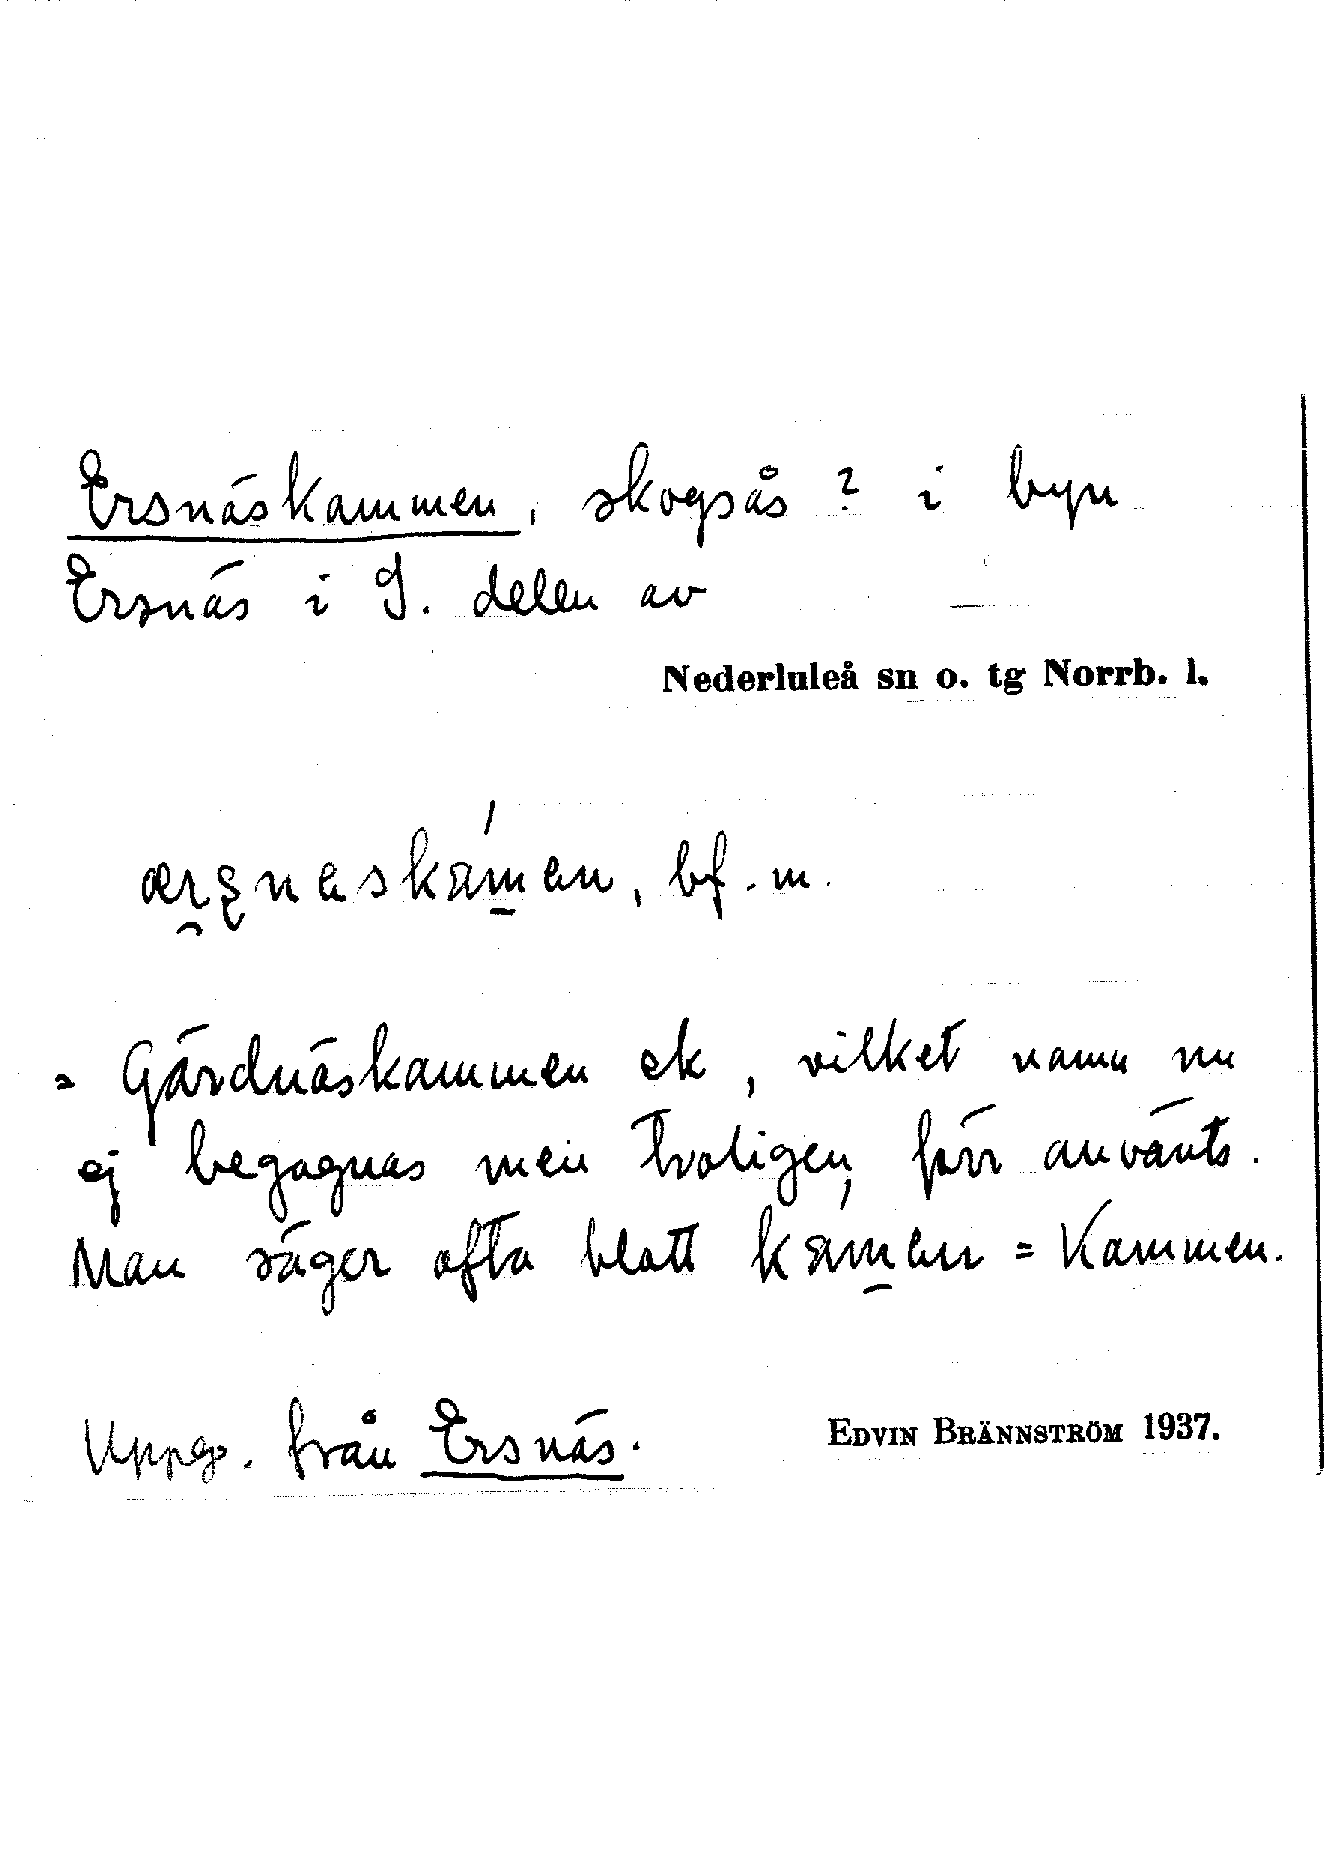 Ersnäskammen, skogsås ? i byn
Ersnäs i S. delen av
Nederluleå sn o. tg Norrb. l.
bf. m.
= Gärdnäskammen ek, vilket namn nu
ej begagnas men troligen förr använts.
Man säger ofta blott kámen = Kammen.
Uppg. från Ersnäs.
EDVIN BRÄNNSTRÖM 1937.